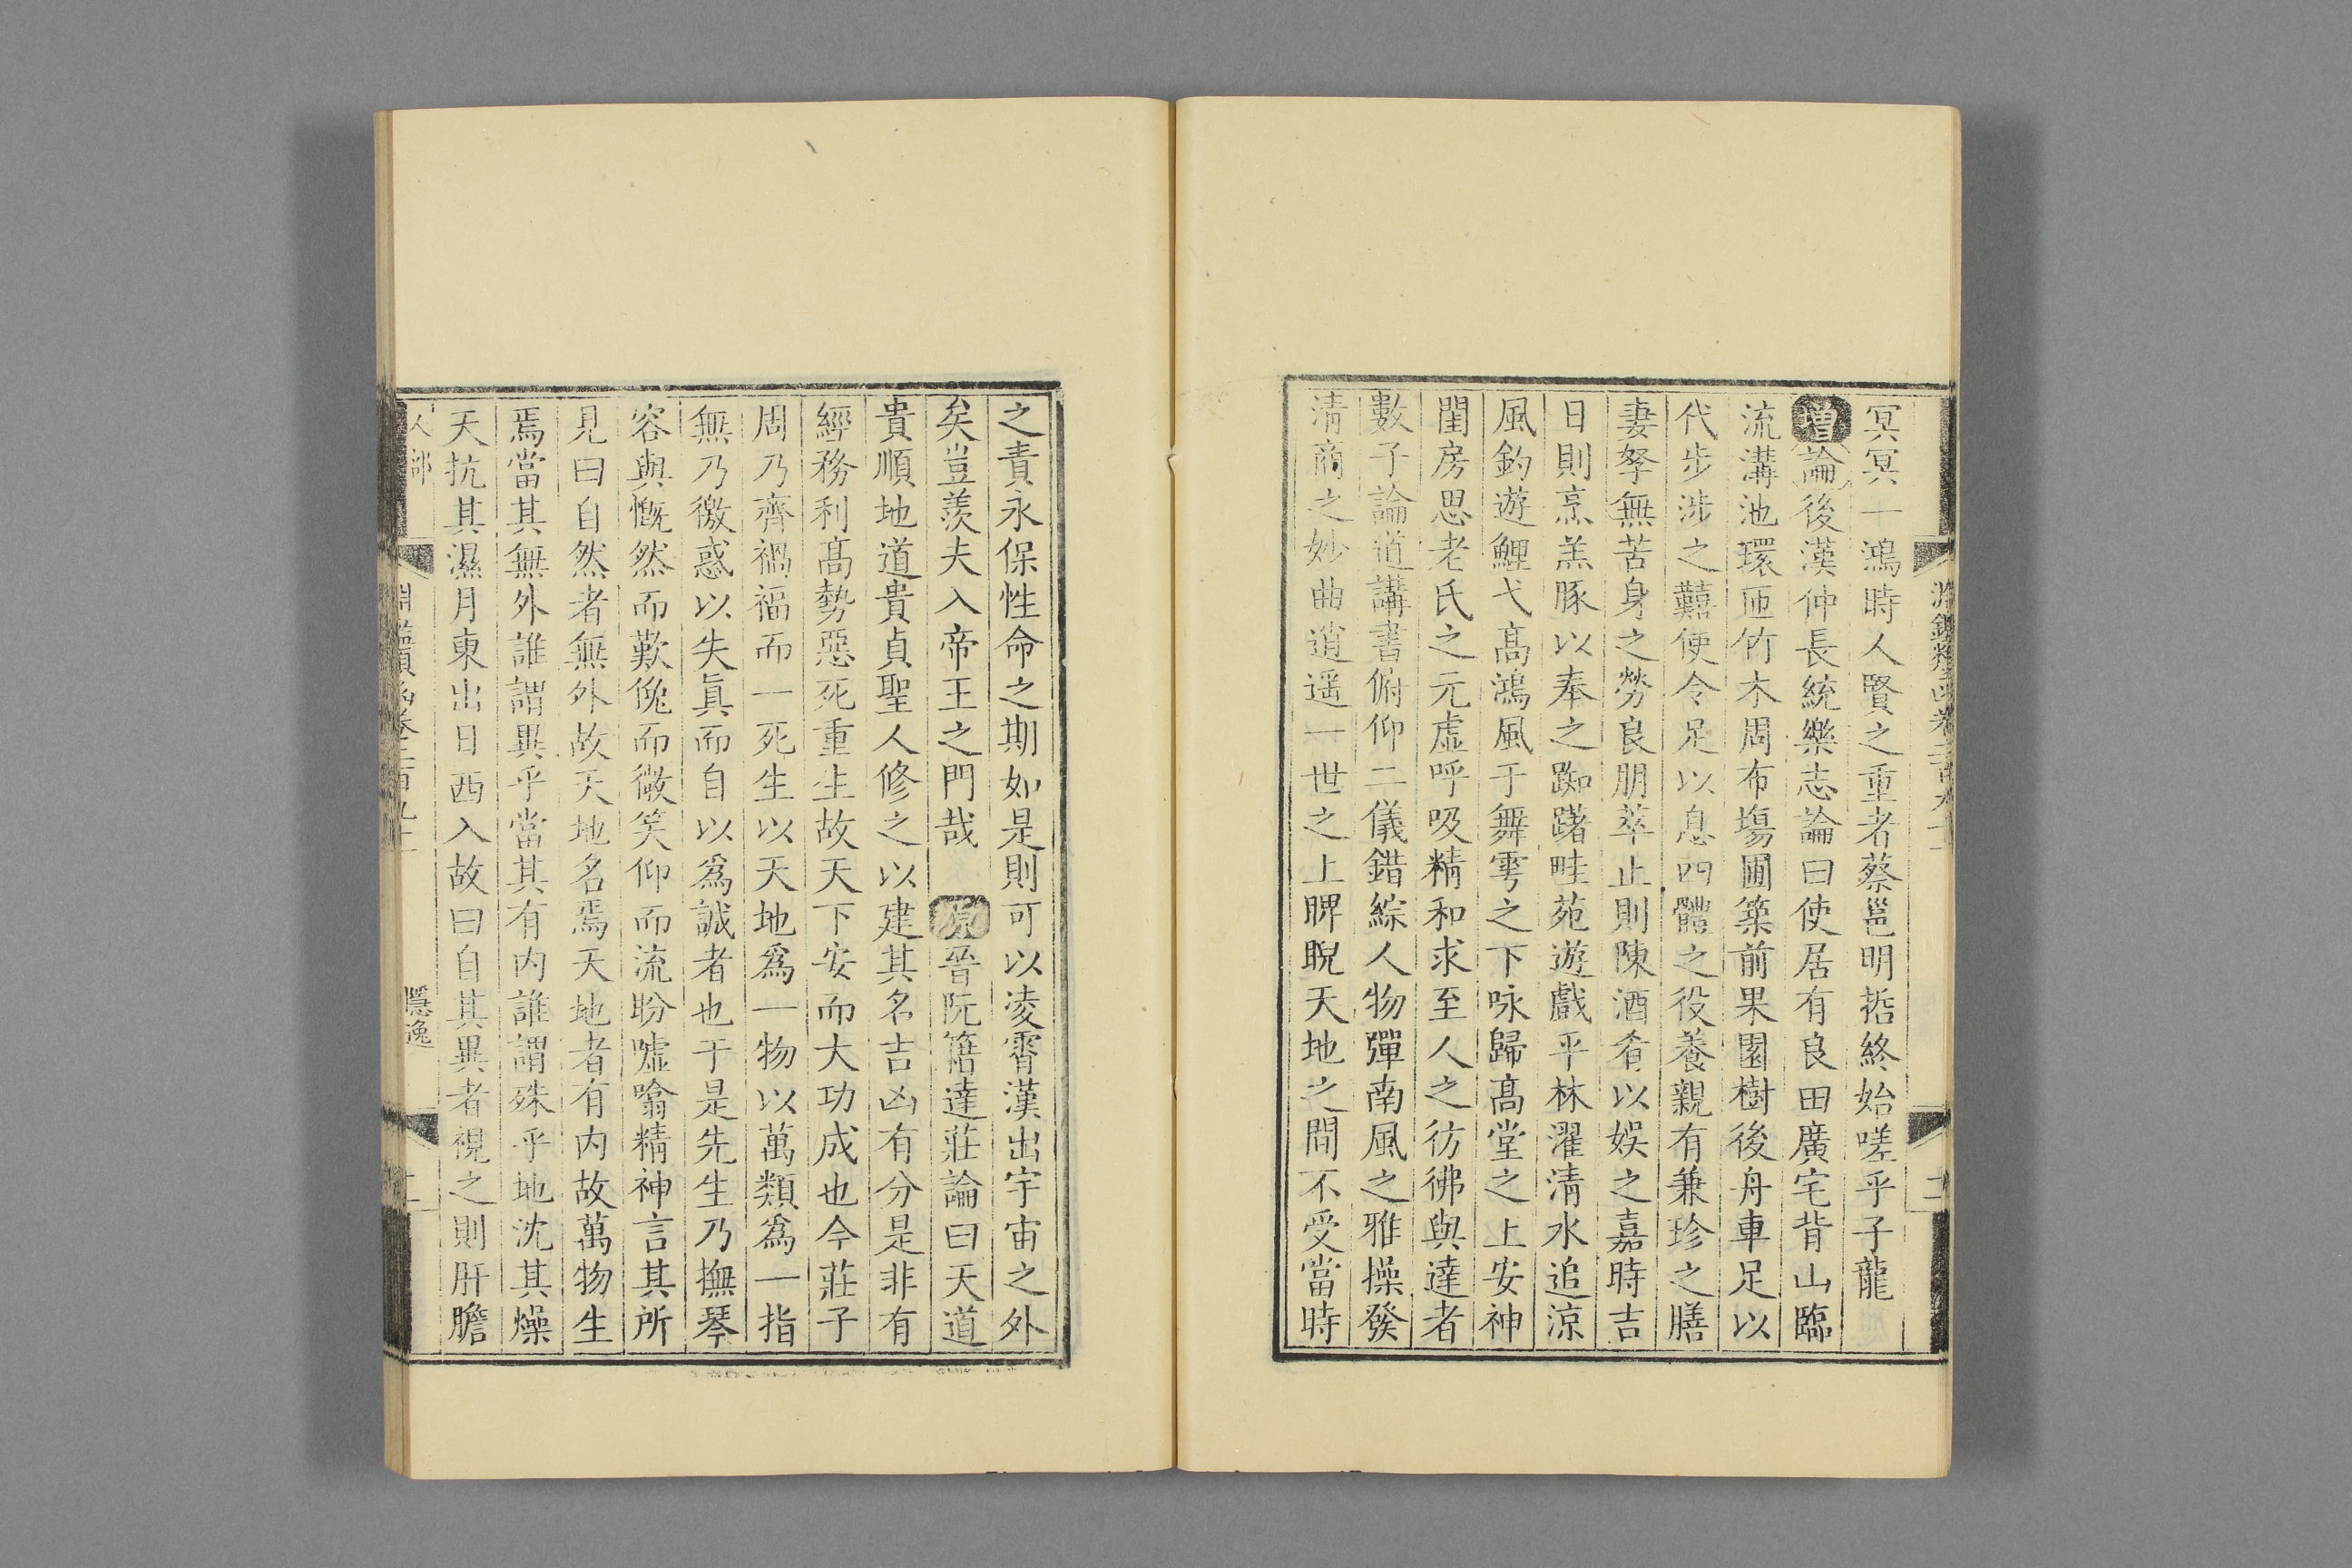 冥冥一鴻時人賢之重者蔡邕明哲終始嗟乎子龍
增論後漢仲長統樂志論曰使居有良田廣宅背山臨
流溝池環匝竹木周布塲圃築前果園樹後舟車足以
代步涉之囏便令足以息四體之役養親有兼珍之膳
妻孥無苦身之勞良朋萃止則陳酒肴以娛之嘉時吉
日則烹羔豚以奉之踟躇畦苑遊戲平林濯清水追涼
風釣遊鯉弋髙鴻風于舞雩之下咏歸髙堂之上安神
閨房思老氏之元虛呼吸精和求至人之彷彿與達者
數子論道講書俯仰二儀錯綜人物彈南風之雅操發
清商之妙曲逍遥一世之上睥睨天地之間不受當時
之責永保性命之期如是則可以凌霄漢出宇宙之外
矣豈羨夫入帝王之門哉 原晉阮籍達莊論曰天道
貴順地道貴貞聖人修之以建其名吉凶有分是非有
經務利髙勢惡死重生故天下安而大功成也今莊子
周乃齊禍福而一死生以天地爲一物以萬類爲一指
無乃徼惑以失眞而自以爲誠者也于是先生乃撫琴
容與慨然而歎俛而微笑仰而流盼噓噏精神言其所
見曰自然者無外故天地名焉天地者有内故萬物生
焉當其無外誰謂異乎當其有内誰謂殊乎地沈其燥
天抗其濕月東出日西入故曰自其異者視之則肝膽
人部
隱逸